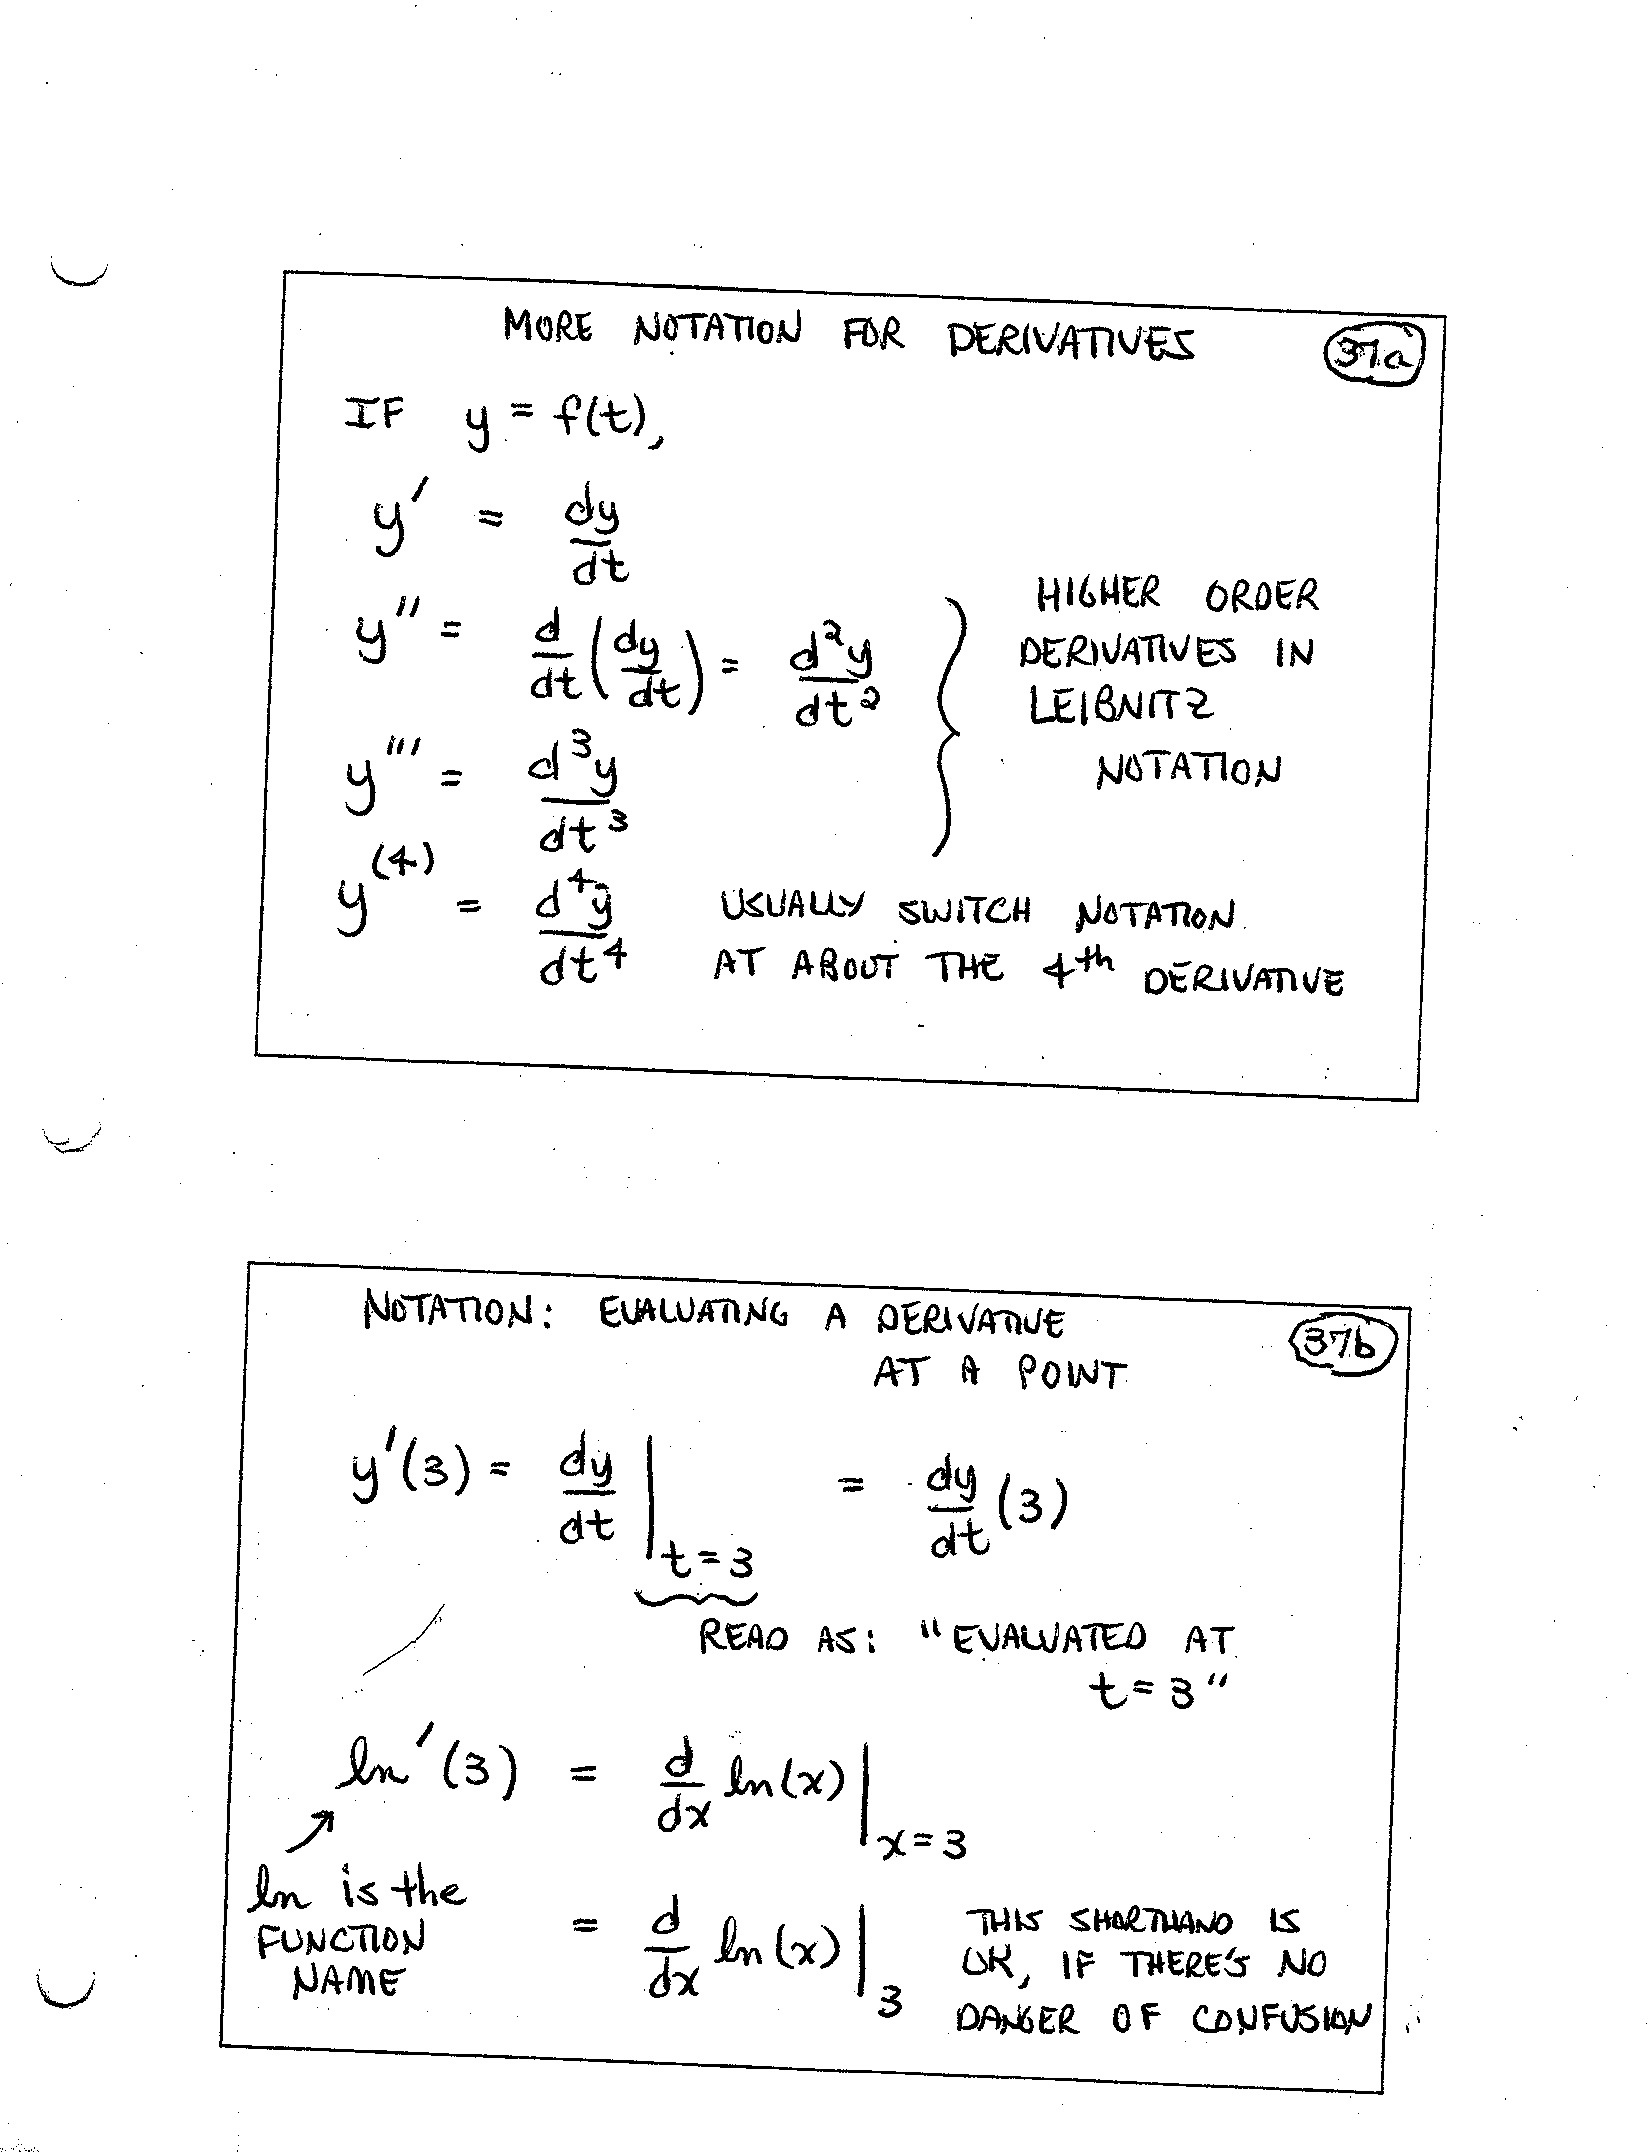 MORE NOTATION FOR DERIVATIVES
37a
IF y = f(t),
y' = dy/dt
y'' = d/dt (dy/dt) = d²y/dt²
y''' = d³y/dt³
HIGHER ORDER
DERIVATIVES IN
LEIBNITZ
NOTATION
y⁽⁴⁾ = d⁴y/dt⁴
USUALLY SWITCH NOTATION
AT ABOUT THE 4th DERIVATIVE
NOTATION: EVALUATING A DERIVATIVE
AT A POINT
37b
y'(3) = dy/dt |t=3 = dy/dt (3)
READ AS: "EVALUATED AT
t=3"
ln'(3) = d/dx ln(x)|x=3
ln is the
FUNCTION
NAME
= d/dx ln(x)|3
THIS SHORTHAND IS
OK, IF THERE'S NO
DANGER OF CONFUSION